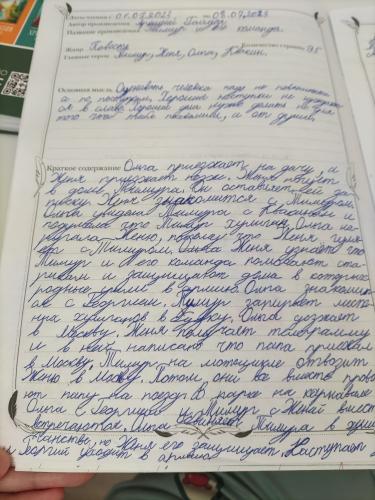 Даты чтения с 01.07.2023 по 08.07.2023
Автор произведения Аркадий Гайдар
Название произведения Тимур и его команда.
Жанр Повесть Количество страниц 95
Главные герои Тимур, Женя, Ольга, Квакин.
Основная мысль Оценивать человека надо не по
а по поступкам. Хорошие поступки не
ом в слава. Хорошие дела нужно делать не для
того чтоб тебя похвалили, а от души.
Краткое содержание Ольга приезжает на дачу, и
Женя приезжает позже. Женя ночует
в доме Тимура. Он оставляет ей за
писку. Женя знакомится с Тимуром.
Ольга увидела Тимура с Квакиным и
подумала что Тимур хулиган. Ольга на-
ругала Женю, потому что Женя гуля
ла с Тимуром. Ольга Женя узнаёт что
Тимур и его команда помогают ста-
рикам и защищают дома в которых
родные ушли в армию. Ольга знакоми
ся с Георгием. Тимур запирает мест-
ных хулиганов в будку. Ольга уезжает
в Москву. Женя получает телеграмму
и в ней написано что папа приехал
в Москву. Тимур на мотоцикле отвозит
Женю в Москву. Потом они все вместе прово
ют папу на поезд. В парке на карнавале
Ольга с Георгием Тимур с Женей вмест
встречаются. Ольга обвиняет Тимура в хули
ганстве, но Женя его защищает. Наступает д
и Георгий уходит в армию.